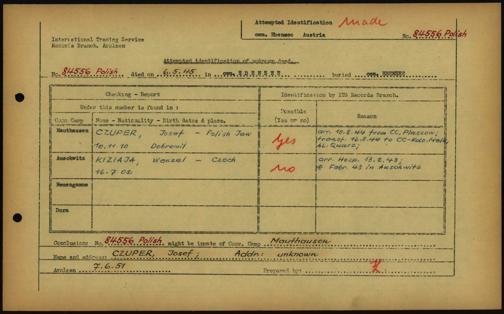 Attempted Identification made
cem. Ebensee Austria
International Tracing Service
Records Branch, Arolsen
No. 84556 Polish
Attempted identification of unknown dead.
No. 84556 Polish died on 6.5.45 in cem. EBENSEE buried cem. EBENSEE
Checking - Report
Identification by ITS Records Branch.
Under this number is found in:
Possible (Yes or no)
Reason
Conc Camp
Name - Nationality - Birth dates & place.
Mauthausen
CZUPER, Josef - Polish Jew
10.11.10 Dobromil
Yes
arr. 10.8.44 from CC. Plaszow;
transf. 16.8.44 to CC-Kdo. Melk,
AL. Quarz;
Auschwitz
KIZIAJA, Wenzel - Czech
16.7.02
no
arr. Hosp. 13.2.43;
Febr. 43 in Auschwitz
Neuengamme
Dora
Conclusion: No. 84556 Polish might be inmate of Conc. Camp Mauthausen
Name and address: CZUPER, Josef; Addr: unknown
Arolsen 7.6.51 Prepared by: